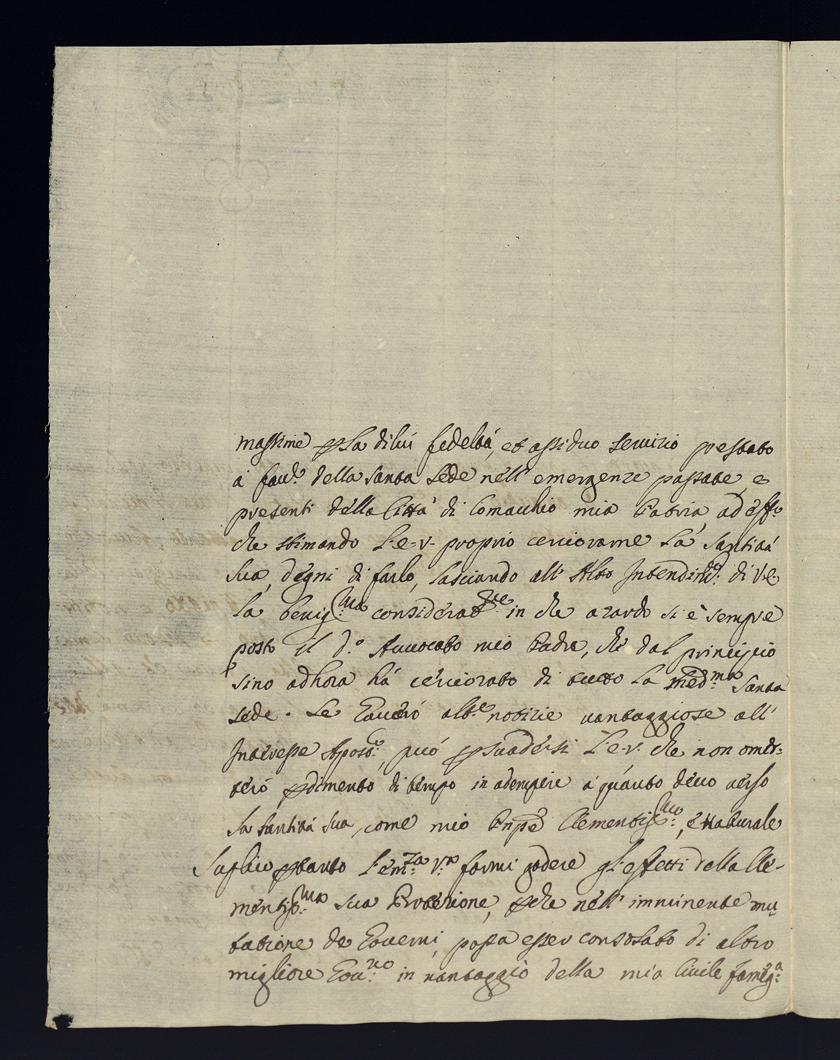 massime p la di lui fedeltà, et assiduo servizio prestato
a fau.e della Santa Sede nell' emergenze passate, e
presenti della Città di Comacchio mia Patria ad effo
che stimando l'e.v. proprio cerciorarne La Santità
Sua, degni di farlo, lasciando all' Alto Intendim.to di Ve
la benig.ma considerat.ne in che azardo si è sempre
posto il d.o Auuocato mio Padre, che dal principio
sino adhora hà cerciorato di tutto la med.ma Santa
Sede. Se hauerò alt.e notizie uantaggiose all'
Interesse Apost.co, può psuadersi l'e.v. che non omet-
terò pdimento di tempo in adempire a quanto deuo uerso
la Santità Sua, come mio Pnpe Clementis.mo, e naturale
Suplico ptanto l'em.za v.ra farmi godere gl'effetti della Cle-
mentis.ma sua Protezione, pche nell' imminente mu
tatione de Gouerni, possa esser consolato di altro
migliore Gou.no in uantaggio della mia Ciuile famig.a